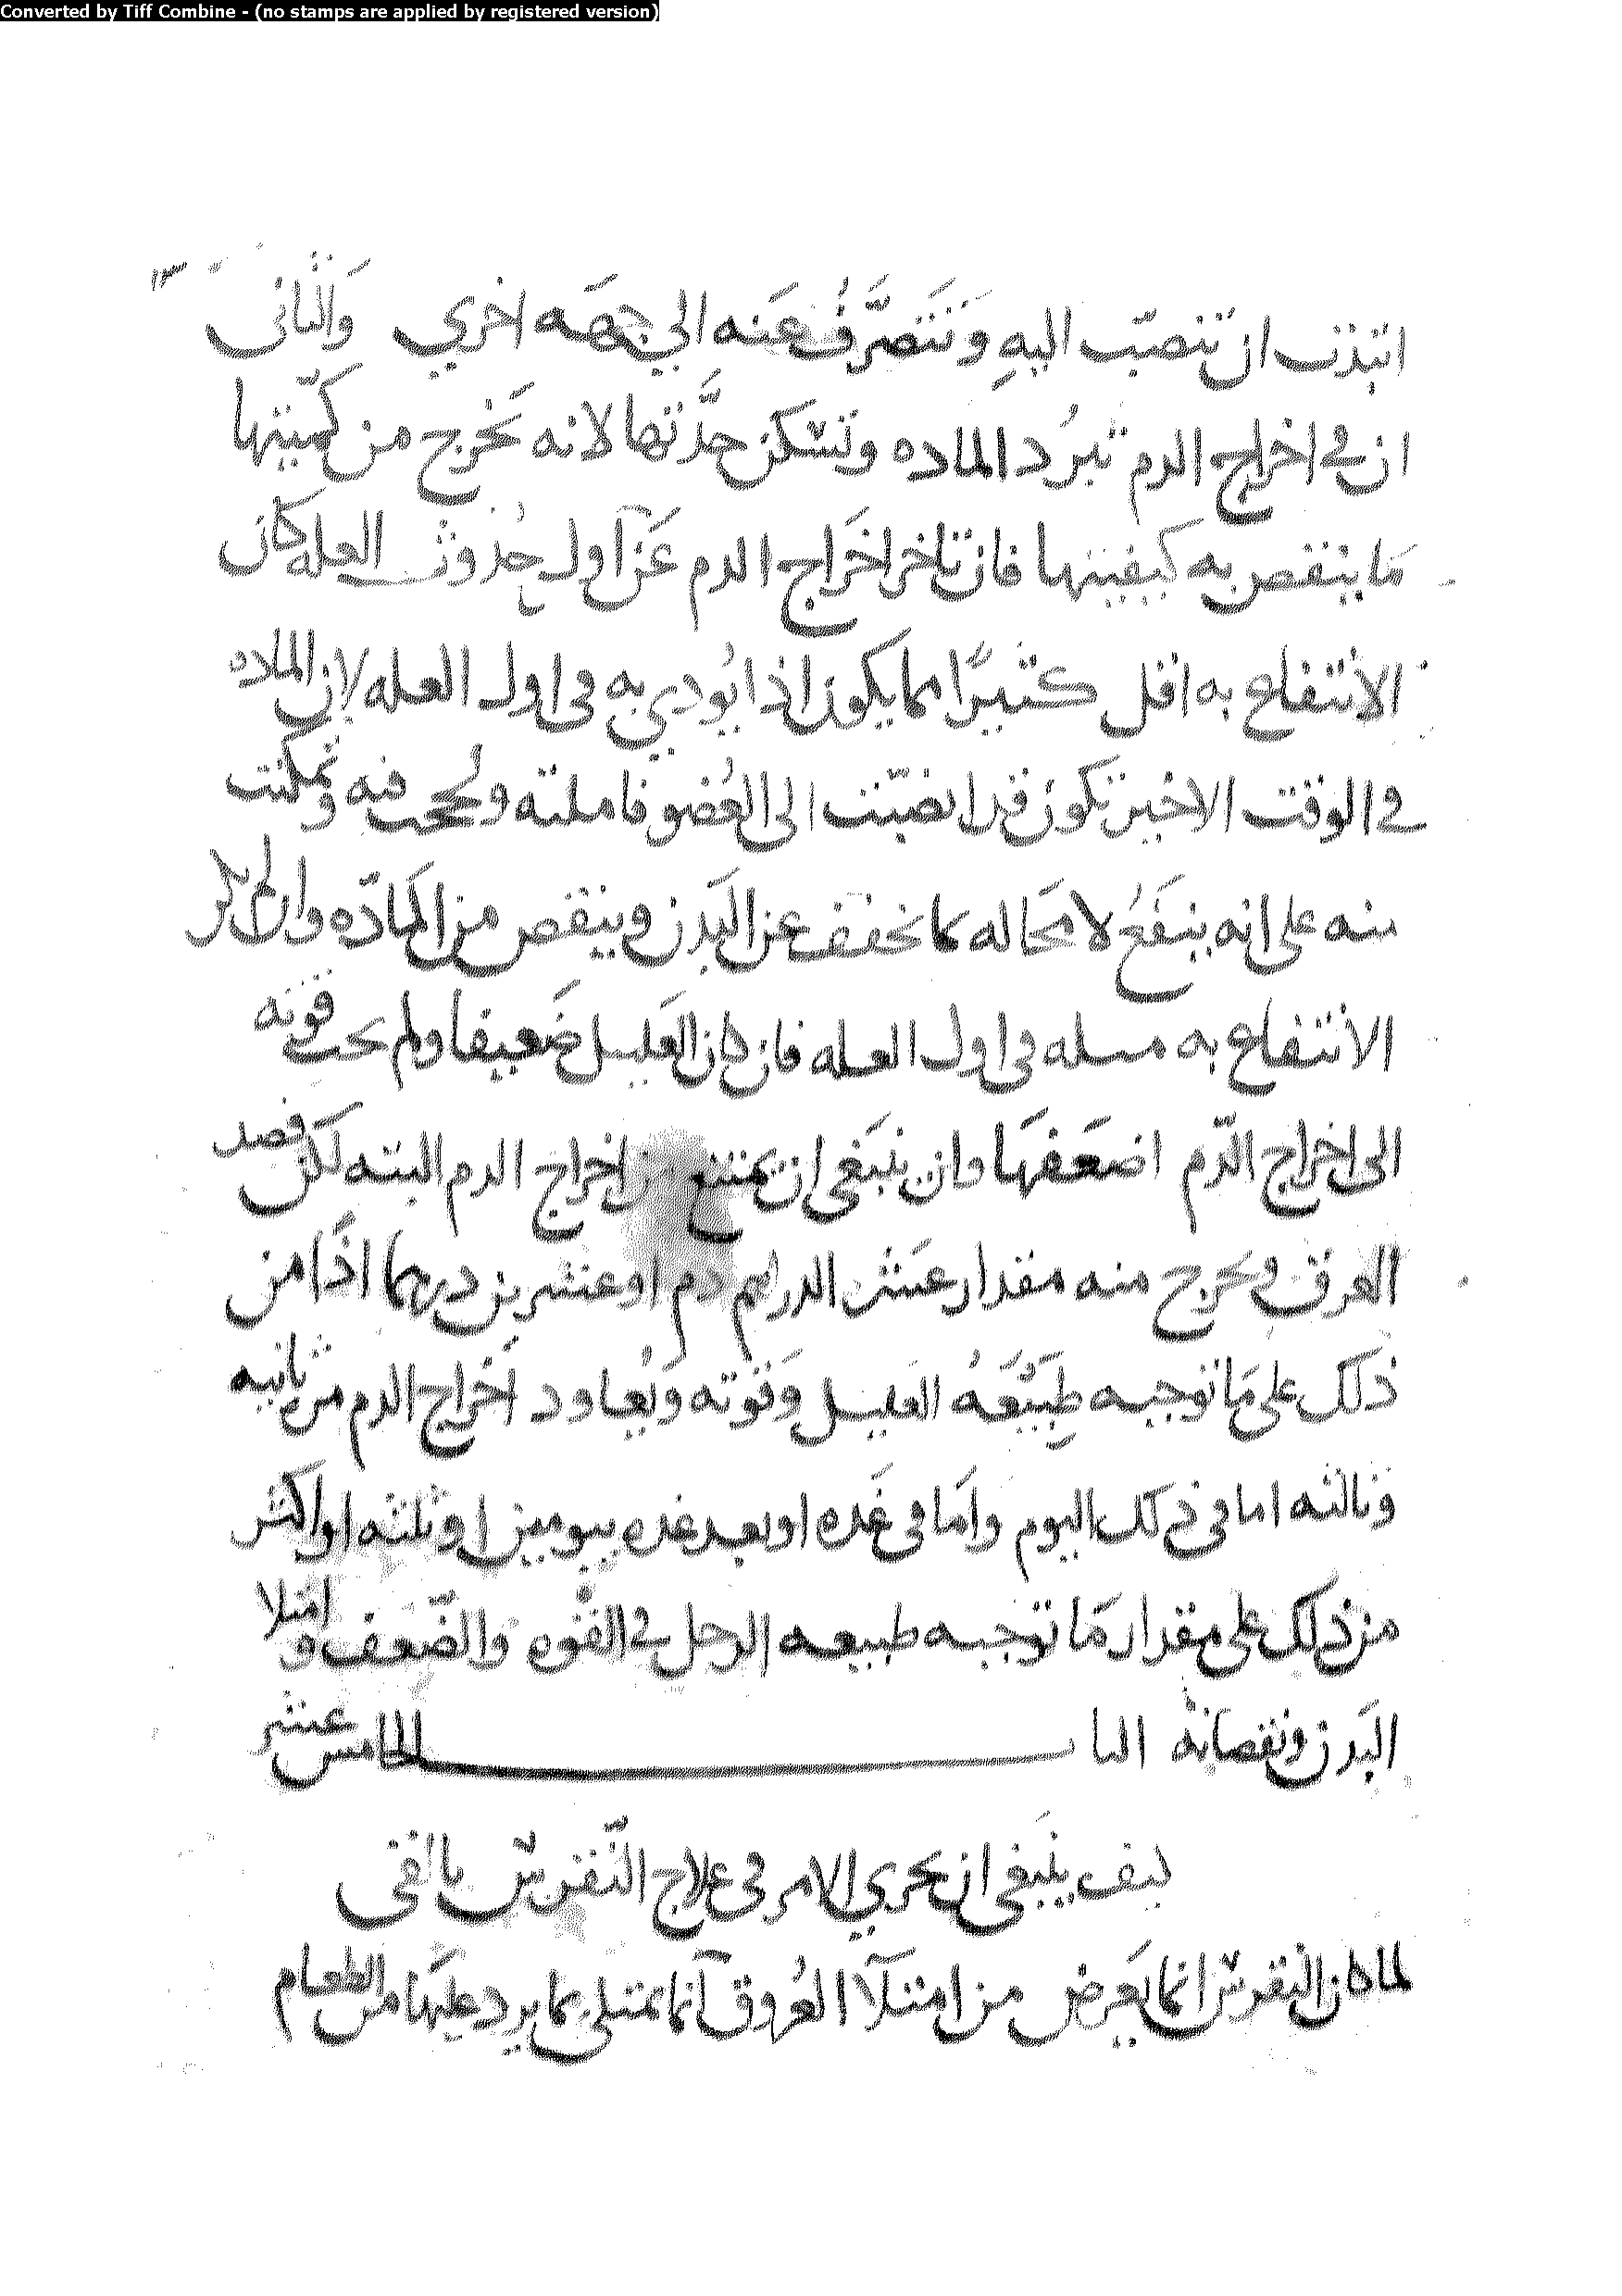 Converted by Tiff Combine - (no stamps are applied by registered version)
١٣
ابتدت ان تنصب اليهِ وَتَنَصَرَّفُ عَنه الي جهَه اخري وَالثانى
ان في اخراج الدم تبرُد الماده وتسَكن حدَّتها لانه يَخرج من كميّتها
مَا ينتقص به كيفيتها فان تاخر اخَراج الدم عَن اول حُدوث العله كان
الانتفاع به اقل كثيرًا مما يكون اذا بُودي به في اول العله لان الماده
في الوقت الاخير تكون قد انصَبّت الى العُضو فاملته ولححت فيه وتمكنت
منه على انه ينفَعُ لا محَاله كما يخفف عن البَدن وينقص من المَادّه وان لم يكن
الانتفاع به مثله في اول العله فان كان العَليل ضَعيفا ولم يحب قوته
الى اخراج الدّم اضعَفهَا وان ينبَغى ان يمتنع من اخراج الدم البته لكن فصد
العرق ويخرج منه مقدار عَشر الدراهم دم او عشرين درهما اذًا من
ذلك على مَا توجبه طَبيّعَهُ العَليل وَقوته وَيُعاود اخَراج الدم من ثانيه
وثالثه اما في ذلك اليوم وامَا في غَده او بعد غده بيومين او ثلثه او اكثر
من ذلك على مقدار مَا توجبه طبيعه الرجل في القوه وَالضّعف و امتلا
البَدن ونقصانه البا ب الخامس عشر
كيف ينبَغى ان يجري الامر في علاج النّقرس بالقى
لما كان النقرس انما يَعرض من امتلآ العُروق وَانما تمتلى بما يرد عليهَا من الطعام